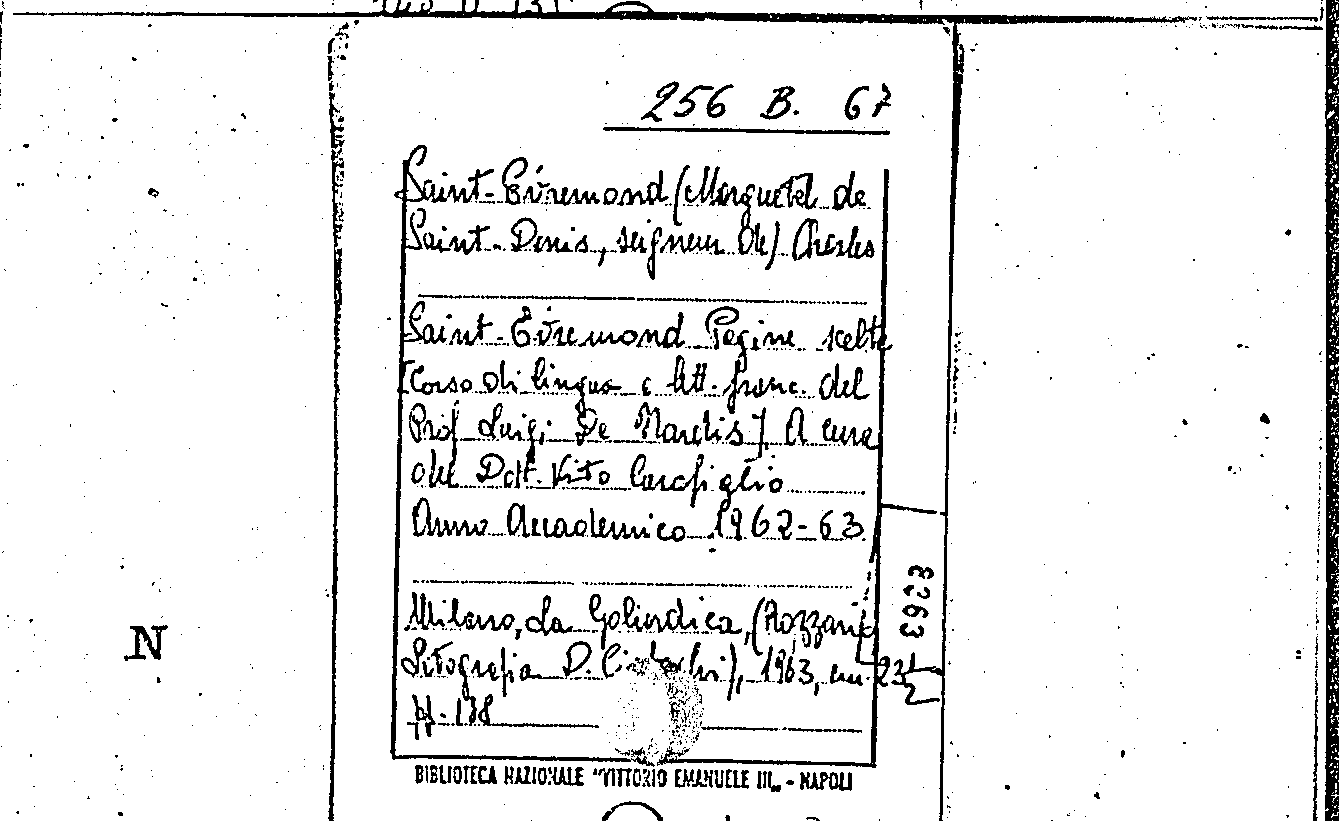 256 B. 67
Saint-Évremond (Marguetel de
Saint-Denis, seigneur de) Charles
Saint-Évremond Pagine scelte
[Corso di lingua e lett. franc. del
Prof. Luigi De Nardis]. A cura
del Dott. Vito Carofiglio
Anno Accademico 1962-63
Milano, La Goliardica, (Rozzano,
Litografia D. ), 1963, cm 23
pp. 138
3263
N
BIBLIOTECA NAZIONALE "VITTORIO EMANUELE III„ - NAPOLI